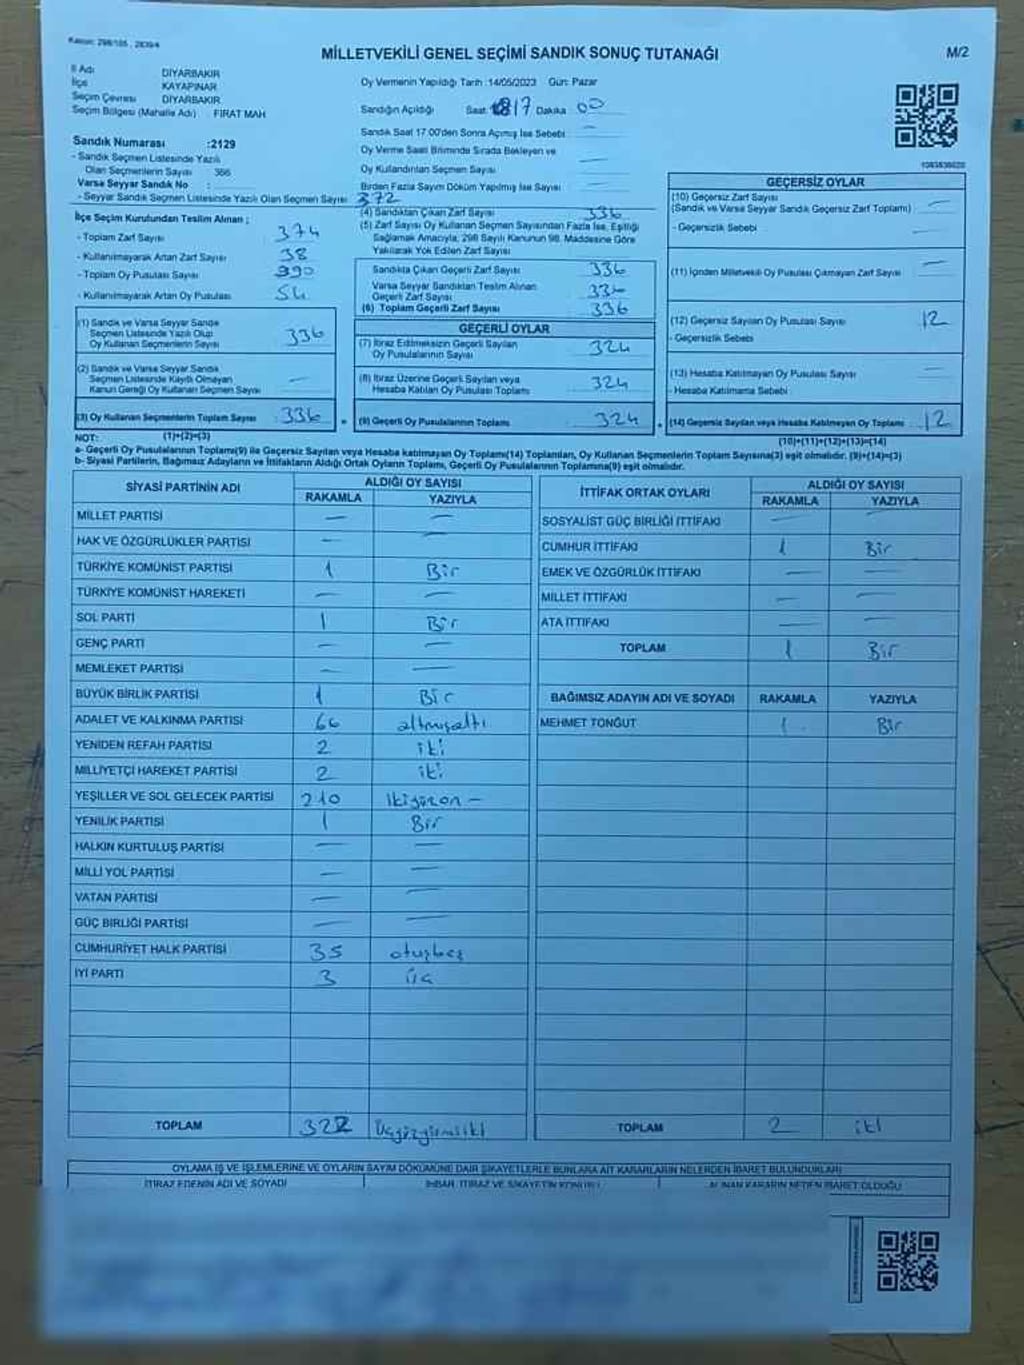 Kanun: 298/105, 2839/4
MİLLETVEKİLİ GENEL SEÇİMİ SANDIK SONUÇ TUTANAĞI
M/2
İl Adı DİYARBAKIR
İlçe KAYAPINAR
Seçim Çevresi DİYARBAKIR
Seçim Bölgesi (Mahalle Adı) FIRAT MAH
Sandık Numarası :2129
- Sandık Seçmen Listesinde Yazılı
Olan Seçmenlerin Sayısı 366
Varsa Seyyar Sandık No :
- Seyyar Sandık Seçmen Listesinde Yazılı Olan Seçmen Sayısı 372
İlçe Seçim Kurulundan Teslim Alınan ;
- Toplam Zarf Sayısı 374
- Kullanılmayarak Artan Zarf Sayısı 38
- Toplam Oy Pusulası Sayısı 390
- Kullanılmayarak Artan Oy Pusulası 54
(1) Sandık ve Varsa Seyyar Sandık
Seçmen Listesinde Yazılı Olup
Oy Kullanan Seçmenlerin Sayısı 336
(2) Sandık ve Varsa Seyyar Sandık
Seçmen Listesinde Kayıtlı Olmayan
Kanun Gereği Oy Kullanan Seçmen Sayısı —
(3) Oy Kullanan Seçmenlerin Toplam Sayısı 336
Oy Vermenin Yapıldığı Tarih :14/05/2023 Gün: Pazar
Sandığın Açıldığı Saat: 17 Dakika 00
Sandık Saat 17:00'den Sonra Açılmış İse Sebebi —
Oy Verme Saati Bitiminde Sırada Bekleyen ve
Oy Kullandırılan Seçmen Sayısı —
Birden Fazla Sayım Döküm Yapılmış İse Sayısı —
(4) Sandıktan Çıkan Zarf Sayısı 336
(5) Zarf Sayısı Oy Kullanan Seçmen Sayısından Fazla İse, Eşitliği
Sağlamak Amacıyla, 298 Sayılı Kanunun 98. Maddesine Göre
Yakılarak Yok Edilen Zarf Sayısı
Sandıkta Çıkan Geçerli Zarf Sayısı 336
Varsa Seyyar Sandıktan Teslim Alınan
Geçerli Zarf Sayısı 336
(6) Toplam Geçerli Zarf Sayısı 336
GEÇERLİ OYLAR
(7) İtiraz Edilmeksizin Geçerli Sayılan
Oy Pusulalarının Sayısı 324
(8) İtiraz Üzerine Geçerli Sayılan veya
Hesaba Katılan Oy Pusulası Toplamı 324
= (9) Geçerli Oy Pusulalarının Toplamı 324
1083836020
GEÇERSİZ OYLAR
(10) Geçersiz Zarf Sayısı
(Sandık ve Varsa Seyyar Sandık Geçersiz Zarf Toplamı) —
- Geçersizlik Sebebi —
(11) İçinden Milletvekili Oy Pusulası Çıkmayan Zarf Sayısı —
(12) Geçersiz Sayılan Oy Pusulası Sayısı 12
- Geçersizlik Sebebi
(13) Hesaba Katılmayan Oy Pusulası Sayısı —
- Hesaba Katılmama Sebebi
+ (14) Geçersiz Sayılan veya Hesaba Katılmayan Oy Toplamı 12
NOT: (1)+(2)=(3) (10)+(11)+(12)+(13)=(14)
a- Geçerli Oy Pusulalarının Toplamı(9) ile Geçersiz Sayılan veya Hesaba katılmayan Oy Toplamı(14) Toplamları, Oy Kullanan Seçmenlerin Toplam Sayısına(3) eşit olmalıdır. (9)+(14)=(3)
b- Siyasi Partilerin, Bağımsız Adayların ve İttifakların Aldığı Ortak Oyların Toplamı, Geçerli Oy Pusulalarının Toplamına(9) eşit olmalıdır.
SİYASİ PARTİNİN ADI ALDIĞI OY SAYISI
RAKAMLA YAZIYLA
MİLLET PARTİSİ — —
HAK VE ÖZGÜRLÜKLER PARTİSİ — —
TÜRKİYE KOMÜNİST PARTİSİ 1 Bir
TÜRKİYE KOMÜNİST HAREKETİ — —
SOL PARTİ 1 Bir
GENÇ PARTİ — —
MEMLEKET PARTİSİ — —
BÜYÜK BİRLİK PARTİSİ 1 Bir
ADALET VE KALKINMA PARTİSİ 66 altmışaltı
YENİDEN REFAH PARTİSİ 2 iki
MİLLİYETÇİ HAREKET PARTİSİ 2 iki
YEŞİLLER VE SOL GELECEK PARTİSİ 210 ikiyüzon —
YENİLİK PARTİSİ 1 Bir
HALKIN KURTULUŞ PARTİSİ — —
MİLLİ YOL PARTİSİ — —
VATAN PARTİSİ — —
GÜÇ BİRLİĞİ PARTİSİ — —
CUMHURİYET HALK PARTİSİ 35 otuzbeş
İYİ PARTİ 3 üç
TOPLAM 322 üçyüzyirmiiki
İTTİFAK ORTAK OYLARI ALDIĞI OY SAYISI
RAKAMLA YAZIYLA
SOSYALİST GÜÇ BİRLİĞİ İTTİFAKI — —
CUMHUR İTTİFAKI 1 Bir
EMEK VE ÖZGÜRLÜK İTTİFAKI — —
MİLLET İTTİFAKI — —
ATA İTTİFAKI — —
TOPLAM 1 Bir
BAĞIMSIZ ADAYIN ADI VE SOYADI RAKAMLA YAZIYLA
MEHMET TONĞUT 1 Bir
TOPLAM 2 iki
OYLAMA İŞ VE İŞLEMLERİNE VE OYLARIN SAYIM DÖKÜMÜNE DAİR ŞİKAYETLERLE BUNLARA AİT KARARLARIN NELERDEN İBARET BULUNDUKLARI
İTİRAZ EDENİN ADI VE SOYADI İHBAR, İTİRAZ VE ŞİKAYETİN KONUSU ALINAN KARARIN NEDEN İBARET OLDUĞU